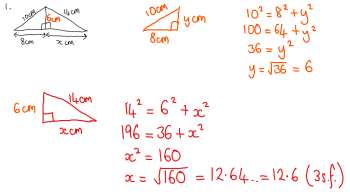 1.
10cm
6cm
14cm
8cm
x cm
10cm
y cm
8cm
10² = 8² + y²
100 = 64 + y²
36 = y²
y = √36 = 6
6cm
14cm
x cm
14² = 6² + x²
196 = 36 + x²
x² = 160
x = √160 = 12.64... = 12.6 (3s.f.)